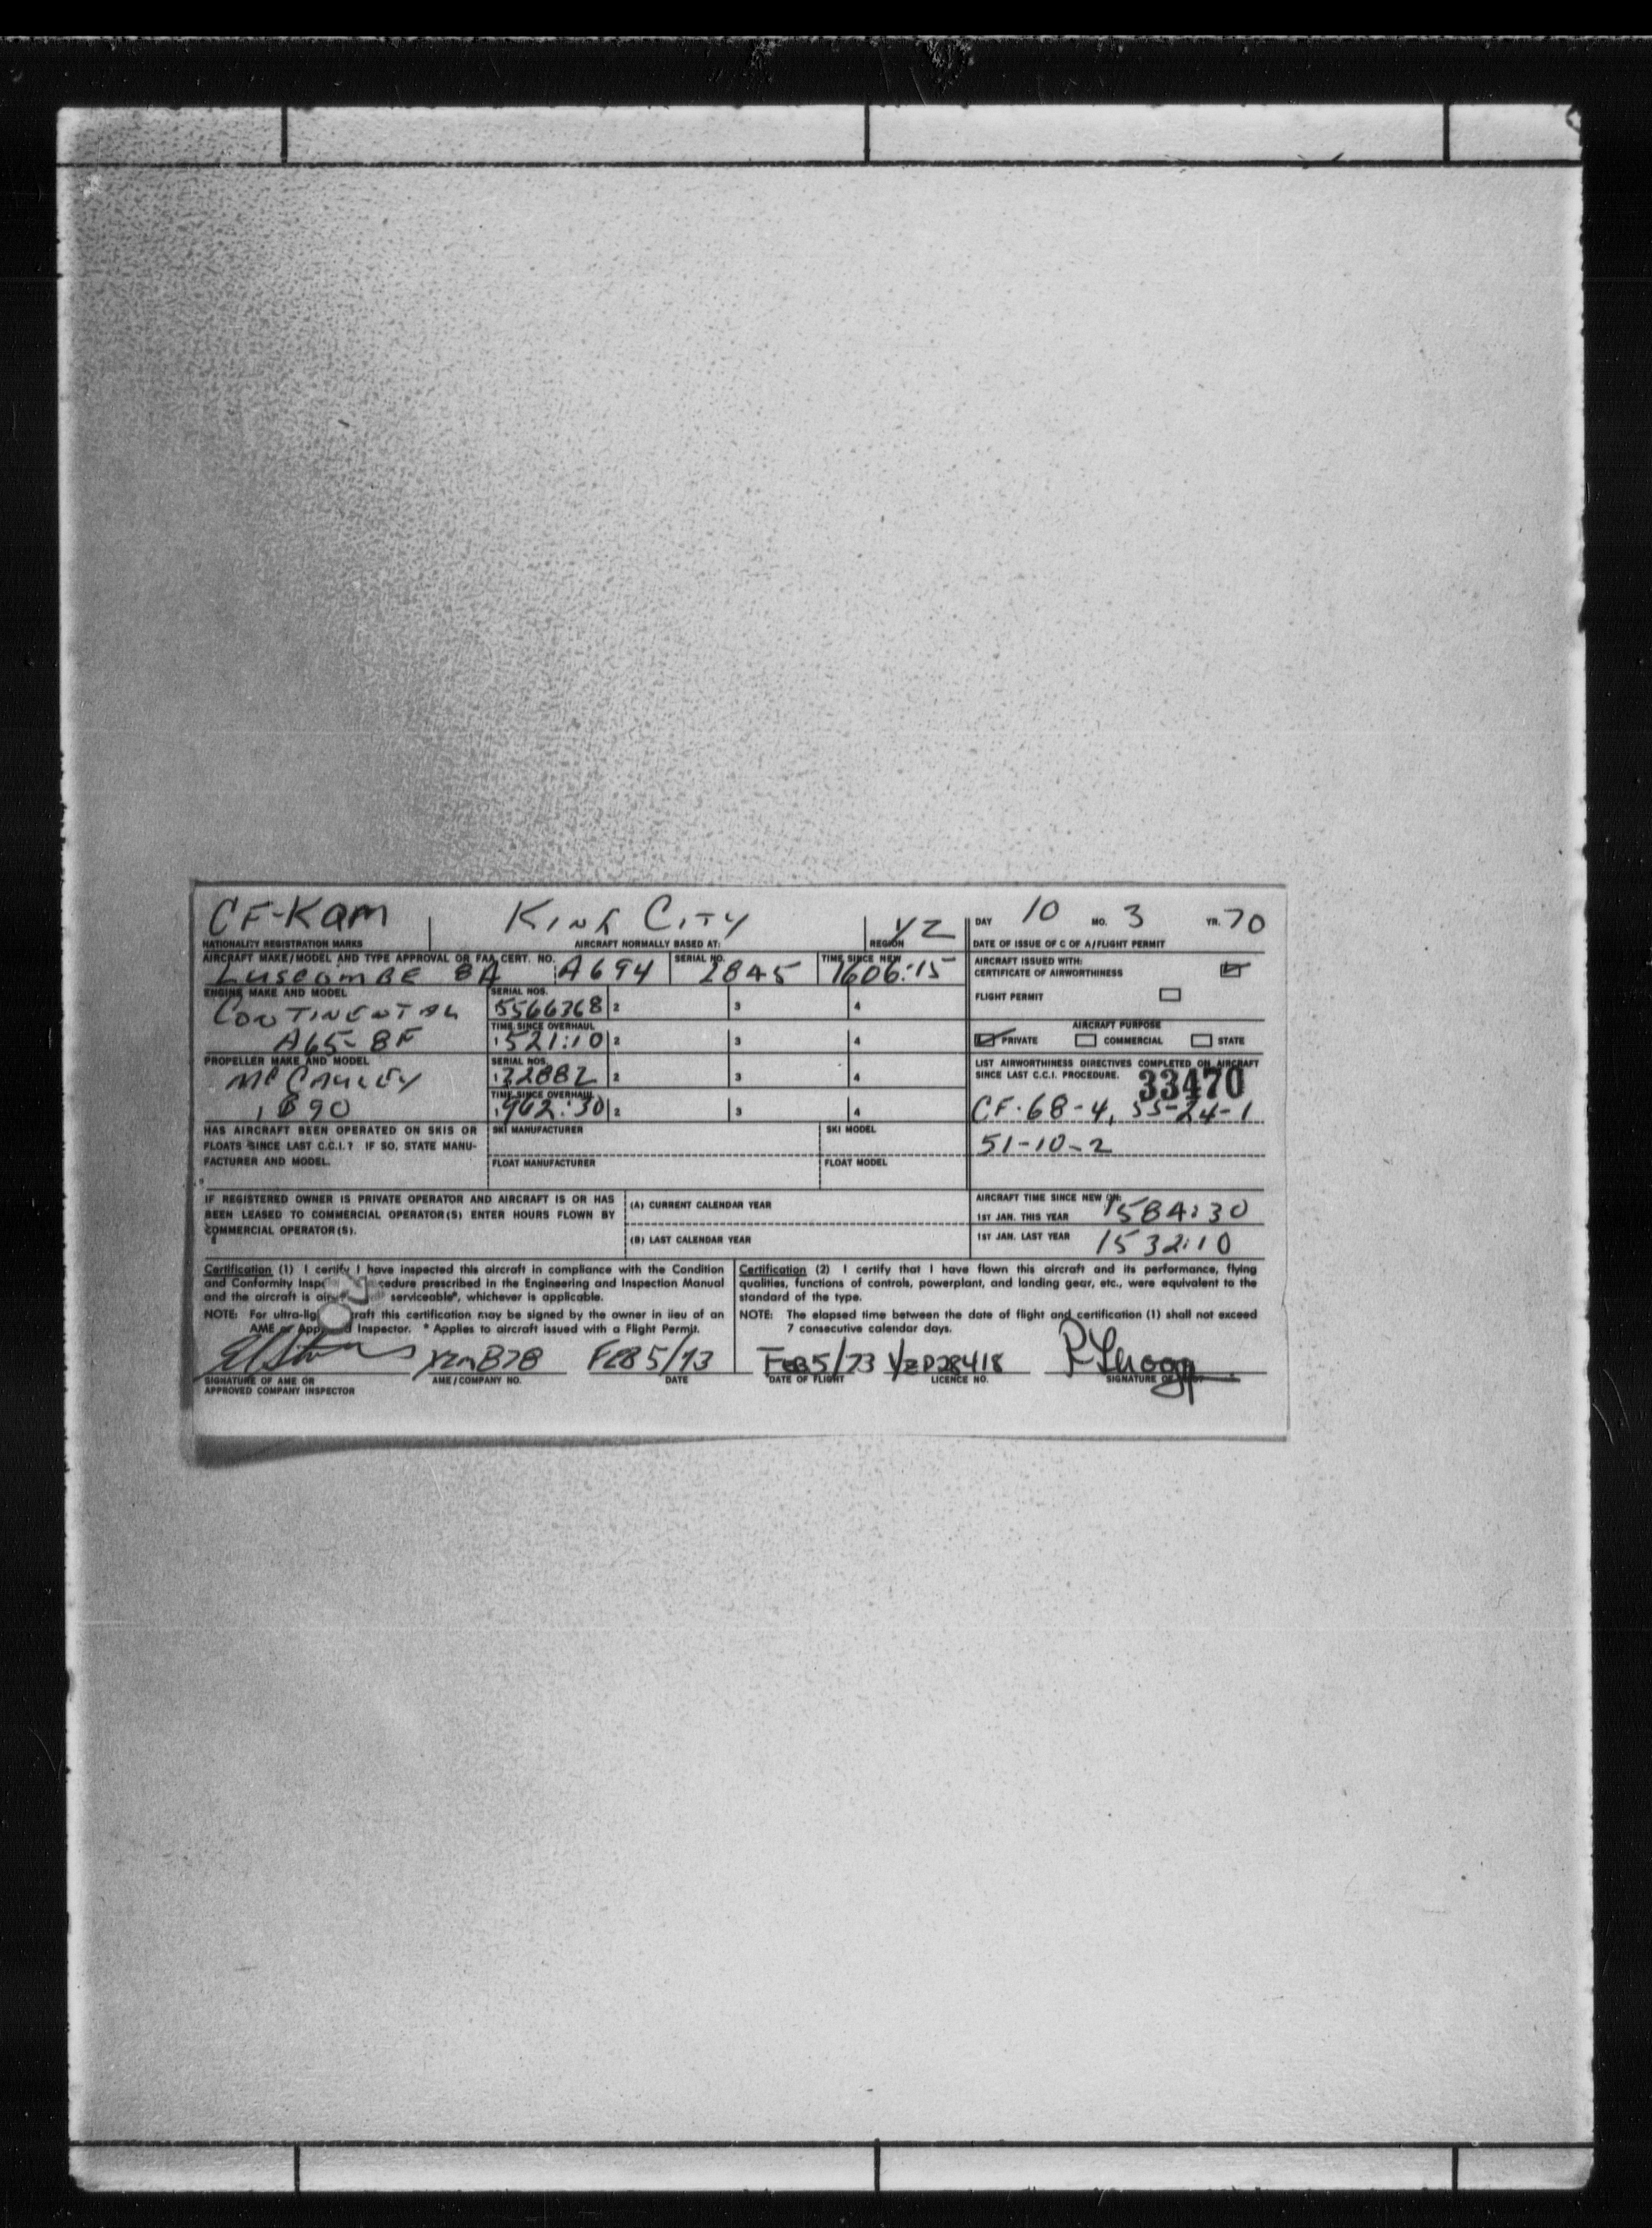 CF-KAM KING CITY YZ DAY 10 MO. 3 YR. 70
NATIONALITY REGISTRATION MARKS AIRCRAFT NORMALLY BASED AT: REGION DATE OF ISSUE OF C OF A/FLIGHT PERMIT
AIRCRAFT MAKE/MODEL AND TYPE APPROVAL OR FAA CERT. NO. SERIAL NO. TIME SINCE NEW AIRCRAFT ISSUED WITH:
LUSCOMBE 8A A694 2845 1606:15 CERTIFICATE OF AIRWORTHINESS
ENGINE MAKE AND MODEL SERIAL NOS. FLIGHT PERMIT
CONTINENTAL 5566368 2 3 4
TIME SINCE OVERHAUL AIRCRAFT PURPOSE
A65-8F 521:10 2 3 4 PRIVATE COMMERCIAL STATE
PROPELLER MAKE AND MODEL SERIAL NOS. LIST AIRWORTHINESS DIRECTIVES COMPLETED ON AIRCRAFT
McCAULEY 32882 2 3 4 SINCE LAST C.C.I. PROCEDURE. 33470
TIME SINCE OVERHAUL
1B90 962:30 2 3 4 CF-68-4, 55-24-1
HAS AIRCRAFT BEEN OPERATED ON SKIS OR SKI MANUFACTURER SKI MODEL
FLOATS SINCE LAST C.C.I.? IF SO, STATE MANU- 51-10-2
FACTURER AND MODEL. FLOAT MANUFACTURER FLOAT MODEL
IF REGISTERED OWNER IS PRIVATE OPERATOR AND AIRCRAFT IS OR HAS (A) CURRENT CALENDAR YEAR AIRCRAFT TIME SINCE NEW ON:
BEEN LEASED TO COMMERCIAL OPERATOR(S) ENTER HOURS FLOWN BY 1ST JAN. THIS YEAR 1584:30
COMMERCIAL OPERATOR(S). (B) LAST CALENDAR YEAR 1ST JAN. LAST YEAR 1532:10
Certification (1) I certify I have inspected this aircraft in compliance with the Condition
and Conformity Insp cedure prescribed in the Engineering and Inspection Manual
and the aircraft is serviceable*, whichever is applicable.
NOTE: For ultra-lig raft this certification may be signed by the owner in lieu of an
AME or Inspector. * Applies to aircraft issued with a Flight Permit.
FEB 5/73
SIGNATURE OF AME OR AME/COMPANY NO. DATE
APPROVED COMPANY INSPECTOR
Certification (2) I certify that I have flown this aircraft and its performance, flying
qualities, functions of controls, powerplant, and landing gear, etc., were equivalent to the
standard of the type.
NOTE: The elapsed time between the date of flight and certification (1) shall not exceed
7 consecutive calendar days.
FEB 5/73 YZP28418
DATE OF FLIGHT LICENCE NO. SIGNATURE OF